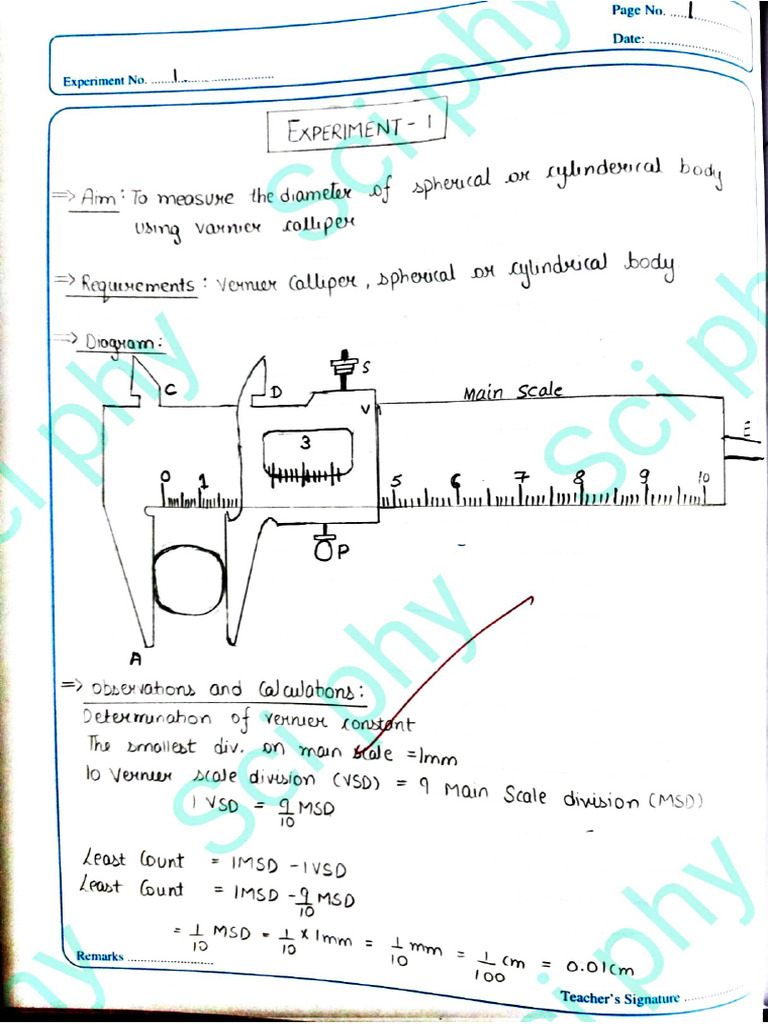 Page No. ..... 1
Date: ........................
Experiment No. ....... 1 ................................
EXPERIMENT - 1
=> Aim : To measure the diameter of spherical or cylinderical body
using varnier calliper
=> Requirements : Vernier Calliper, spherical or cylindrical body
=> Diagram :
C D S
Main Scale
V
E
3
0 1 5 6 7 8 9 10
P
A
=> Observations and Calculations :
Determination of vernier constant
The smallest div. on main scale = 1mm
10 Vernier scale division (VSD) = 9 Main Scale division (MSD)
1 VSD = 9/10 MSD
Least Count = 1MSD - 1VSD
Least Count = 1MSD - 9/10 MSD
= 1/10 MSD = 1/10 × 1mm = 1/10 mm = 1/100 cm = 0.01cm
Remarks ........................
Teacher's Signature ........................
Sci phy
Sci phy
Sci phy
Sci phy
Sci phy